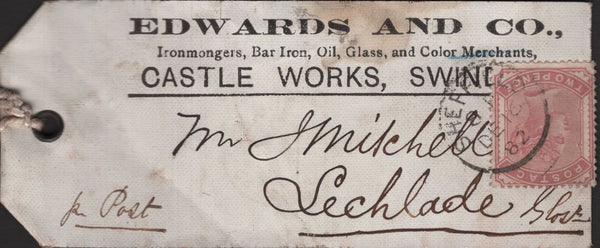 EDWARDS AND CO.,
Ironmongers, Bar Iron, Oil, Glass, and Color Merchants,
CASTLE WORKS, SWIND
TWO PENCE
POSTAGE
DE 12
82
Mr J Mitchell
Lechlade Glos
pr Post